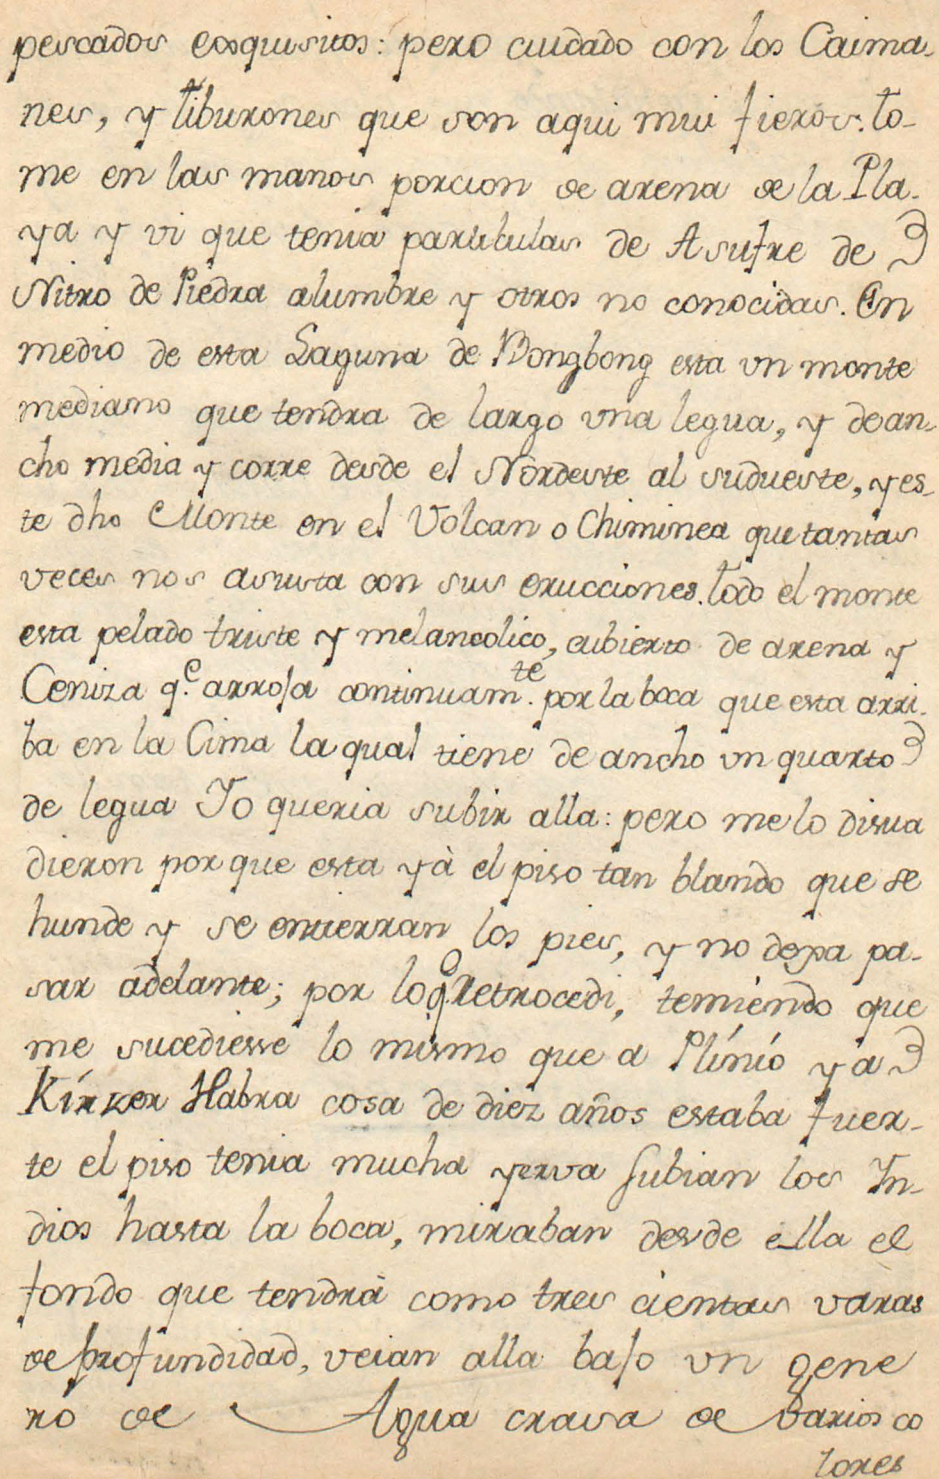 pescados exquisitos: pero cuidado con los Caima-
nes, y tiburones que son aqui mui fieros. to-
me en las manos porcion de arena de la Pla-
ya y vi que tenia particulas de Asufre de
Nitro de Piedra alumbre y otros no conocidas. En
medio de esta Laguna de Bongbong esta vn monte
mediano que tendra de largo vna legua, y de an-
cho media y corre desde el Nordeste al sudueste, y es-
te dho Monte en el Volcan o Chiminea que tantas
veces nos asusta con sus erucciones. todo el monte
esta pelado triste y melancolico, cubierto de arena y
Ceniza q.e arroja continuam.te por la boca que esta arri-
ba en la Cima la qual tiene de ancho vn quarto
de legua Yo queria subir alla: pero me lo disua
dieron por que esta yà el piso tan blando que se
hunde y se entierran los pies, y no dexa pa-
sar adelante; por lo q.o Retrocedi, temiendo que
me sucediesse lo mismo que a Plínío y a
Kírker Habra cosa de diez años estaba fuer-
te el piso tenia mucha yerva subian los Yn-
dios hasta la boca, miraban desde ella el
fondo que tendrá como tres cientas varas
de profundidad, veian alla bajo vn gene
ro de Agua crasa de varios co
lores